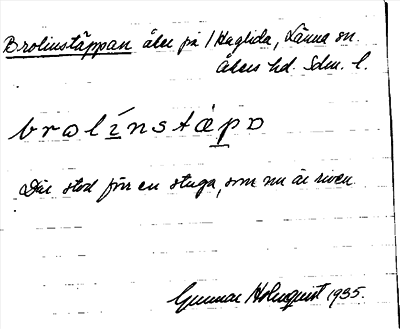 Brolinstäppan åker på 1 Haglida, Länna sn.
Åkers hd. Sdm. l.
brolínstápo
Där stod förr en stuga, som nu är riven.
Gunnar Holmquist 1935.